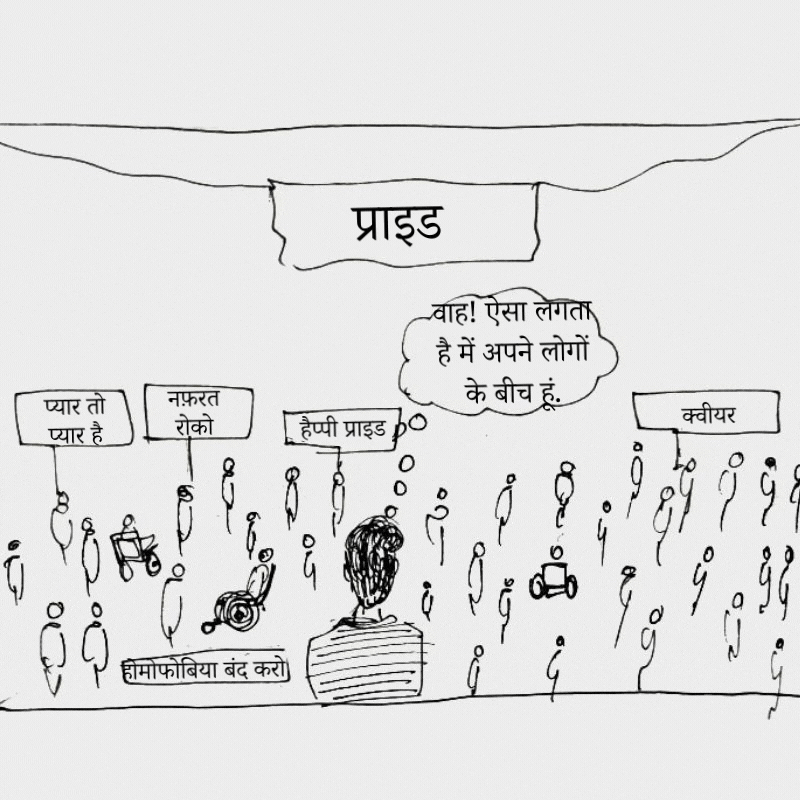 प्राइड
वाह! ऐसा लगता
है में अपने लोगों
के बीच हूं.
प्यार तो
प्यार है
नफ़रत
रोको
हैप्पी प्राइड
क्वीयर
होमोफोबिया बंद करो